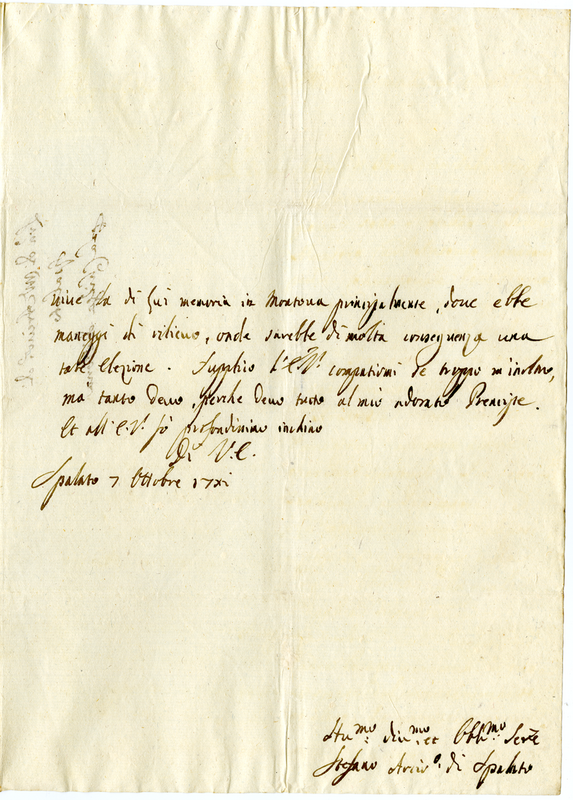 viue la di lui memoria in Mantoua principalmente, doue ebbe
maneggi di rilieuo, onde sarebbe di molta conseguenza una
tale Elezione. Supplico l'E.V. compatirmi se troppo m'inoltro,
ma tanto deuo, perche deuo tutto al mio adorato Prencipe.
Et all'E.V. fò profondissimo inchino
Di V.E.
Spalato 7 Ottobre 17xi
Hu.mo Diu.mo et Obb.mo Seru.e
Stefano Arciu.o di Spalato